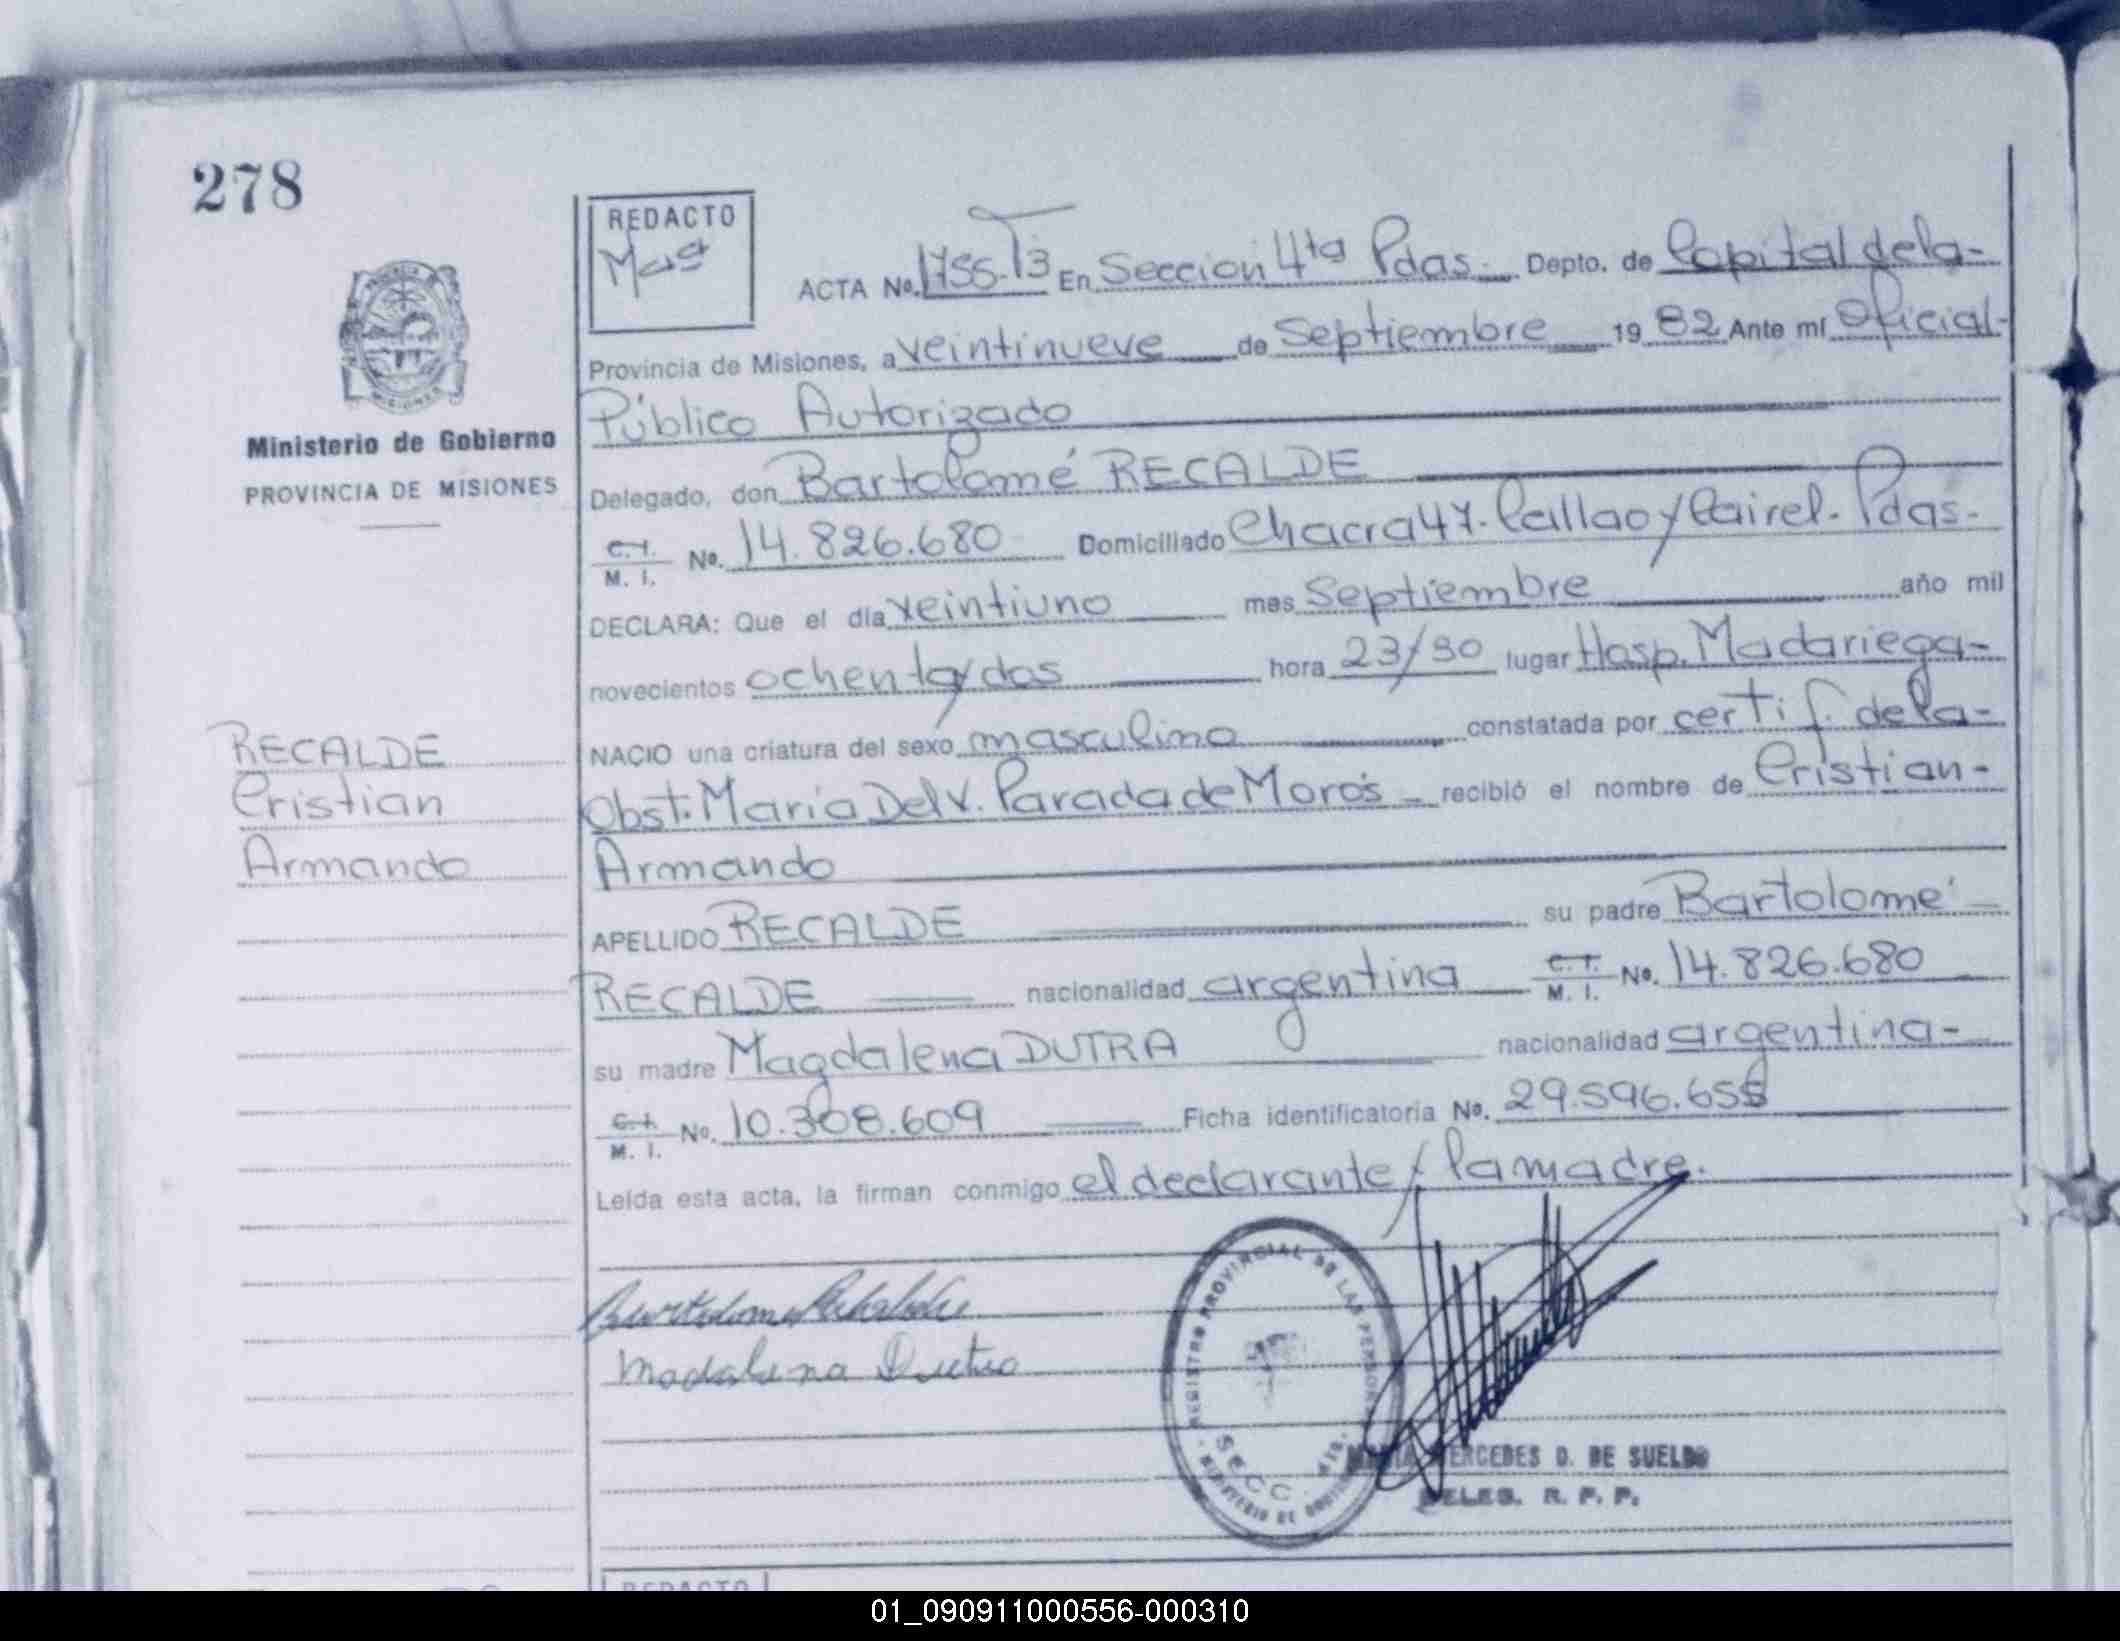 278
REDACTO
Mag
ACTA No. 1755-T3 En Seccion 4ta Pdas.- Depto. de Capital dela-
Provincia de Misiones, a veintinueve de Septiembre 19 82 Ante mí Oficial-
Público Autorizado
Ministerio de Gobierno
PROVINCIA DE MISIONES
Delegado, don Bartolomé RECALDE
C.I. M. I. No. 14.826.680 Domiciliado Chacra 47. Callao y Cairel. Pdas.-
DECLARA: Que el día veintiuno mes Septiembre año mil
novecientos ochenta y dos hora 23/30 lugar Hosp. Madariega-
NACIO una criatura del sexo masculino constatada por certif. dela-
Obst. María Del V. Parada de Morós - recibió el nombre de Cristian-
Armando
RECALDE
Cristian
Armando
APELLIDO RECALDE su padre Bartolomé -
RECALDE nacionalidad argentina C.I. M. I. No. 14.826.680
su madre Magdalena DUTRA nacionalidad argentina-
C.I. M. I. No. 10.308.609 Ficha identificatoria No. 29.596.655
Leída esta acta, la firman conmigo el declarante y la madre.
Madalena Dutra
REGISTRO PROVINCIAL DE LAS PERSONAS
SECC. 4ta.
MINISTERIO DE GOBIERNO
MARIA MERCEDES D. DE SUELDO
DELEG. R. P. P.
REDACTO
01_090911000556-000310